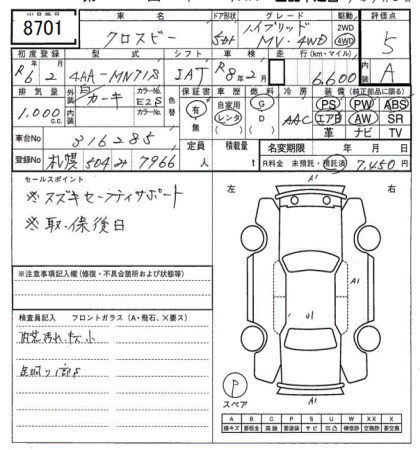 8701
車名
クロスビー
ドア形状 グレード 駆動
5ドア ハイブリッド MV・4WD
2WD
4WD
評価点
5
初度登録 型式 シフト 車検 走行(km・マイル)
R6年2月 4AA-MN71S IAT R8年2月 6,600
内装 A
排気量 外装色 カラーNo. 色替 保証書 車歴 燃料 冷房 装備(純正部品に限る)
1,000 c.c. カーキ E2S 有 無 自家用 レンタ G D AAC PS PW ABS
エアB AW SR
革 ナビ TV
車台No 316285
定員 人 積載量 t
名変期限 年 月 日
登録No 札幌 504 み 7966
R料金 未預託・預託済 7,450円
セールスポイント
※スズキセーフティサポート
※取・保後日
※注意事項記入欄(修復・不具合箇所および状態等)
検査員記入 フロントガラス(A・飛石、×要ス)
内装汚れ・キズ小
左 右
A1
A1
A1
P
スペア
A B C P S U W X XX
線キズ 要板金 腐蝕 要塗装 サビ 凹凸 補修跡 要交換 交換